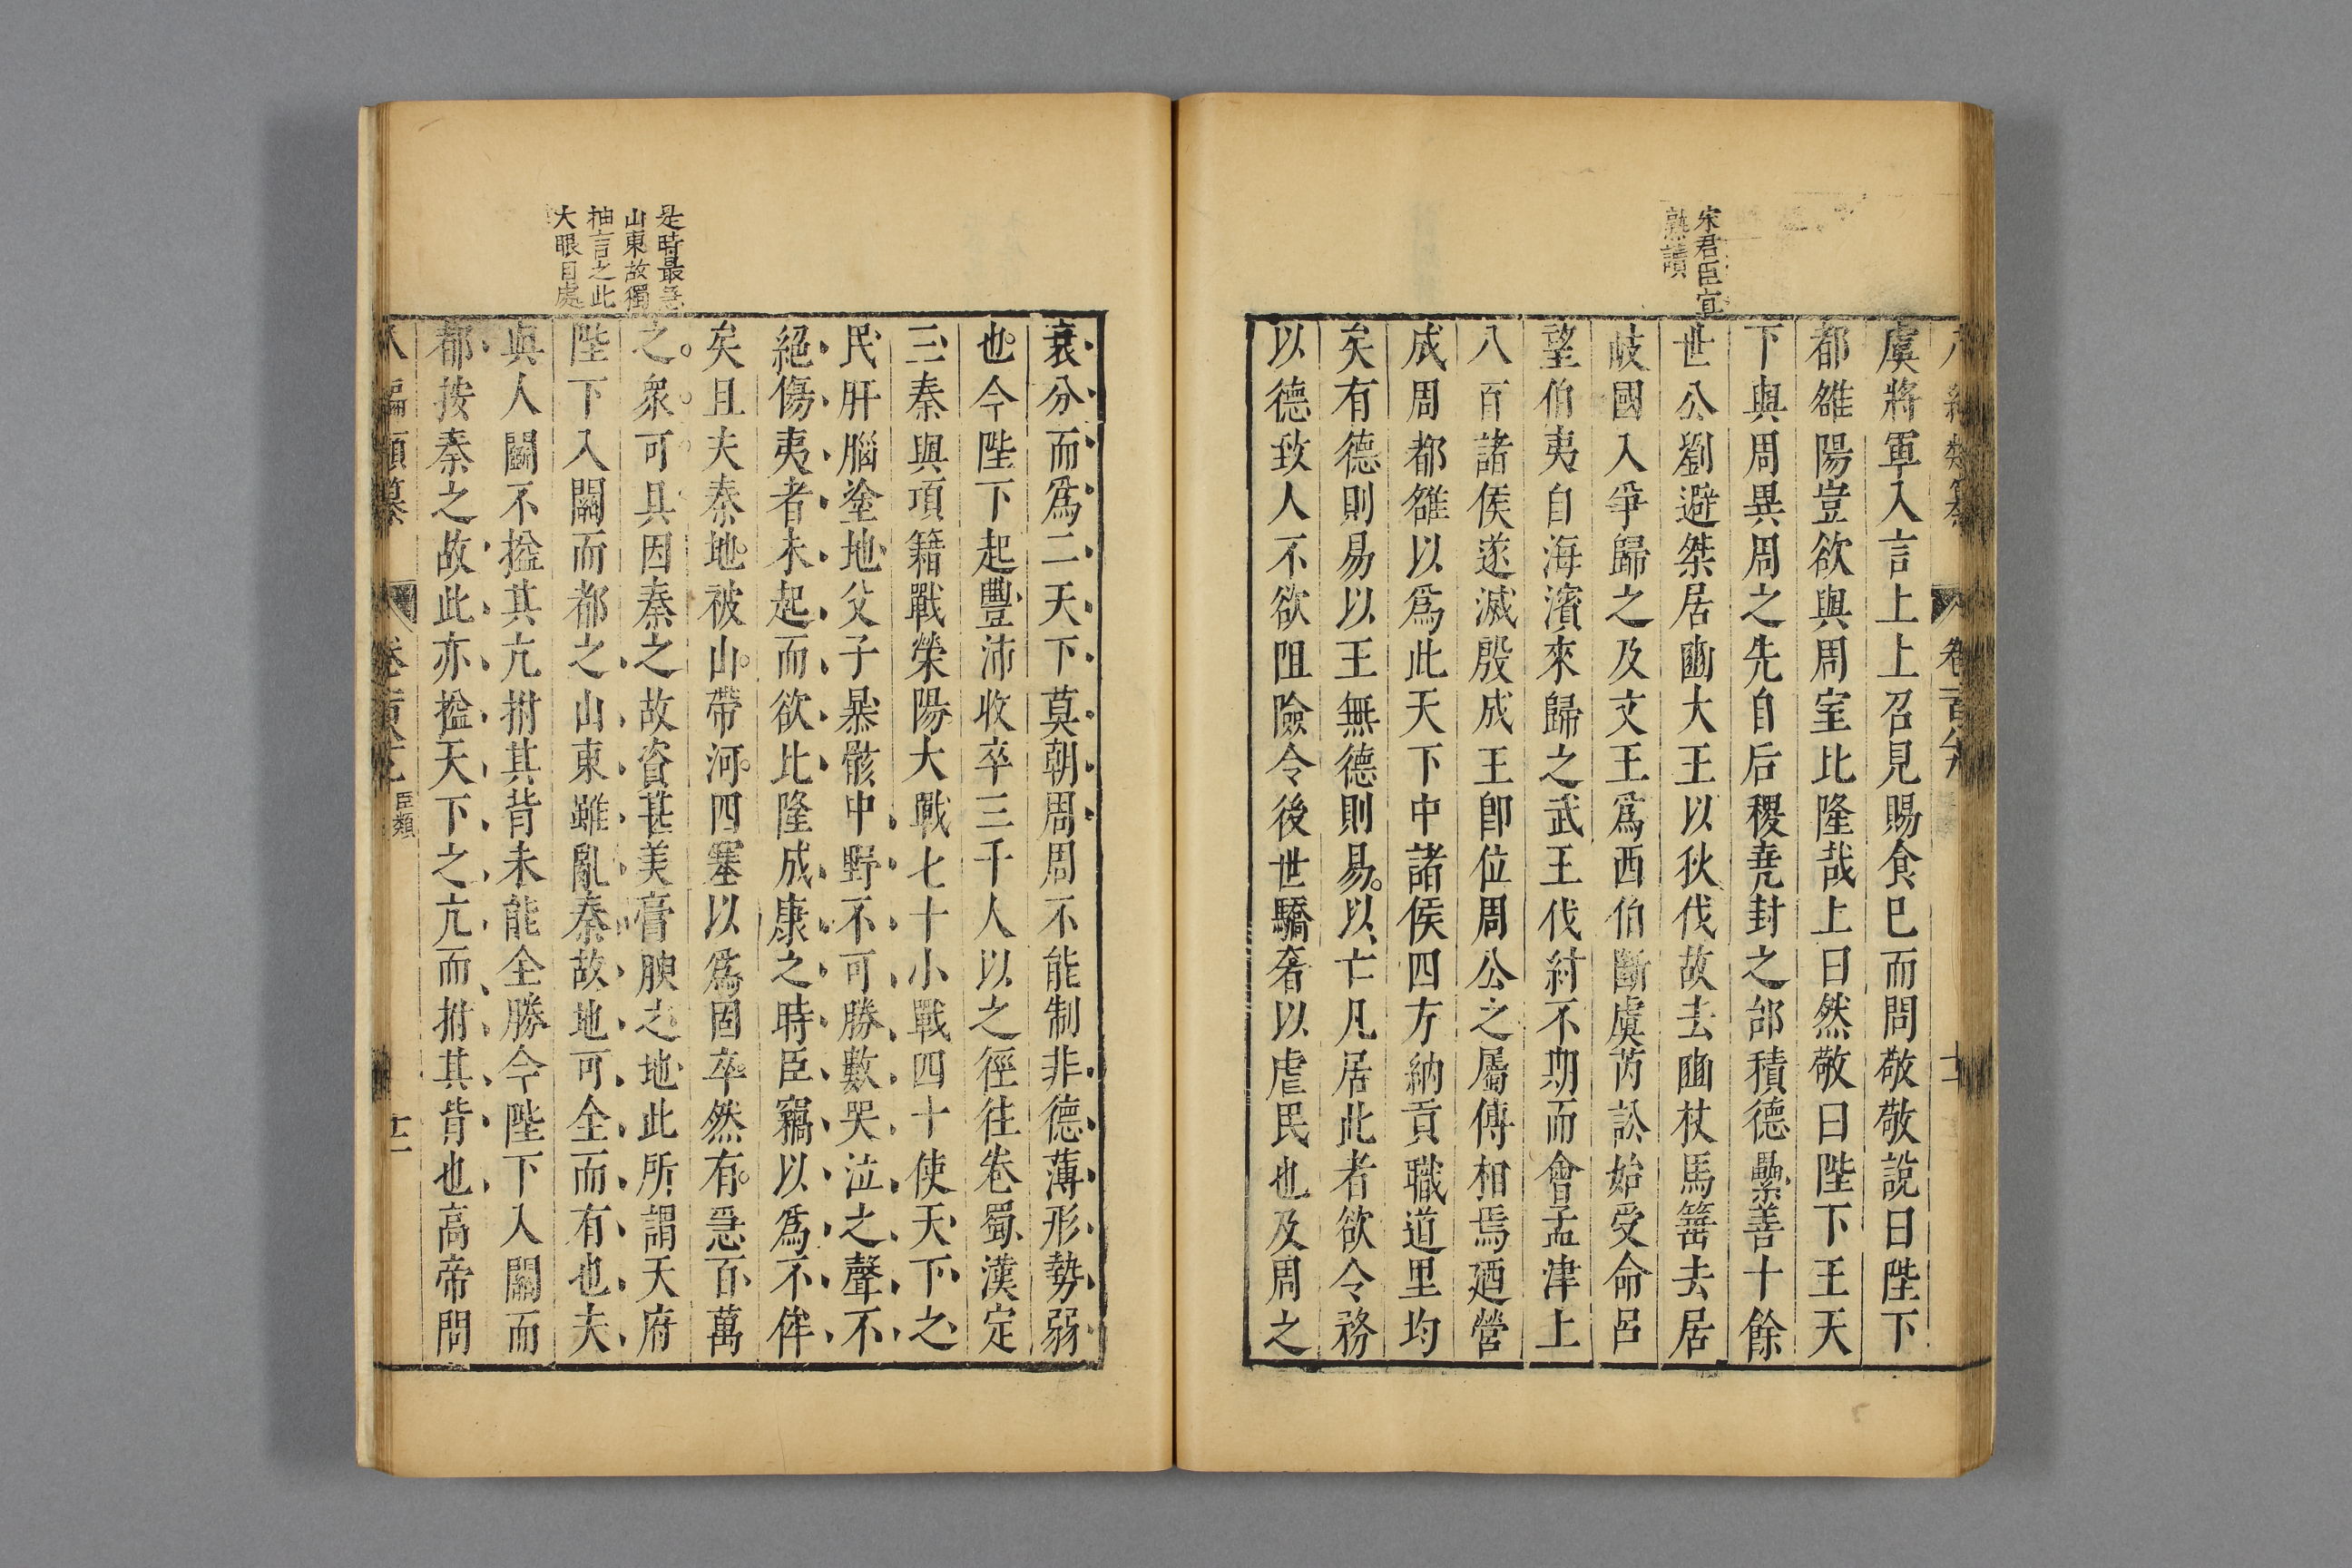 宋君臣宜
熟讀
虞將軍入言上上召見賜食已而問敬敬說曰陛下
都雒陽豈欲與周室比隆哉上曰然敬曰陛下王天
下與周異周之先自后稷堯封之邰積德纍善十餘
世公劉避桀居豳大王以狄伐故去豳杖馬箠去居
岐國人爭歸之及文王爲西伯斷虞芮訟始受命呂
望伯夷自海濱來歸之武王伐紂不期而會孟津上
八百諸侯遂滅殷成王卽位周公之屬傅相焉廼營
成周都雒以爲此天下中諸侯四方納貢職道里均
矣有德則易以王無德則易以亡凡居此者欲令務
以德致人不欲阻險令後世驕奢以虐民也及周之
是時最急
山東故獨
抽言之此
大眼目處
衰分而爲二天下莫朝周周不能制非德薄形勢弱
也今陛下起豐沛收卒三千人以之徑往卷蜀漢定
三秦與項籍戰滎陽大戰七十小戰四十使天下之
民肝腦塗地父子暴骸中野不可勝數哭泣之聲不
絕傷夷者未起而欲比隆成康之時臣竊以爲不侔
矣且夫秦地被山帶河四塞以爲固卒然有急百萬
之衆可具因秦之故資甚美膏腴之地此所謂天府
陛下入關而都之山東雖亂秦故地可全而有也夫
與人鬭不搤其亢拊其背未能全勝今陛下入關而
都按秦之故此亦搤天下之亢而拊其背也高帝問
八編類纂 卷 臣類 十二